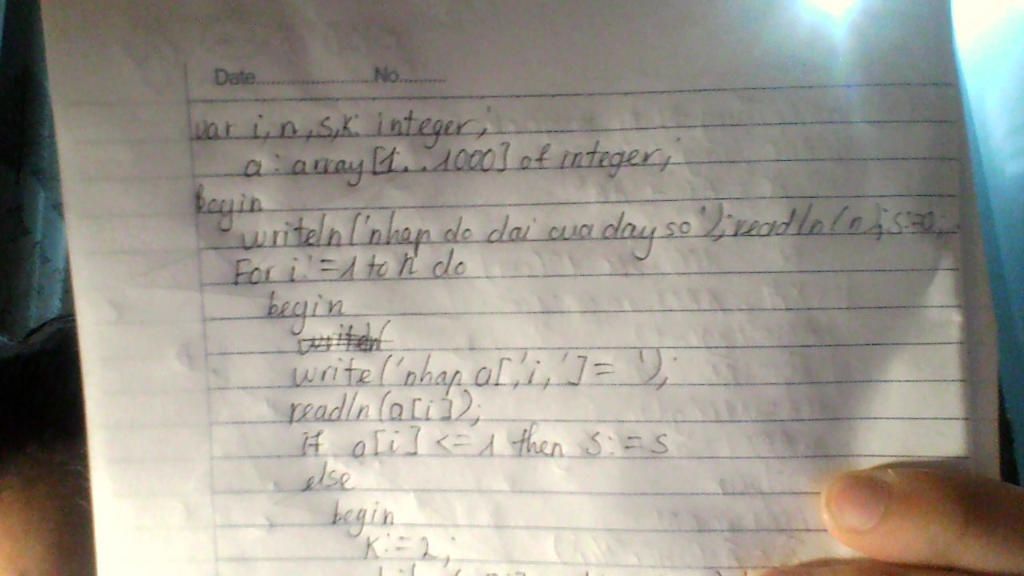 Date.................... No..........
var i, n, s, k: integer;
a: array [1..1000] of integer;
begin
writeln('nhap do dai cua day so'); readln(n); s:=0;
For i:=1 to n do
begin
writeln(
write('nhap a[',i,']= ');
readln(a[i]);
if a[i] <= 1 then s:=s
else
begin
k:=2;